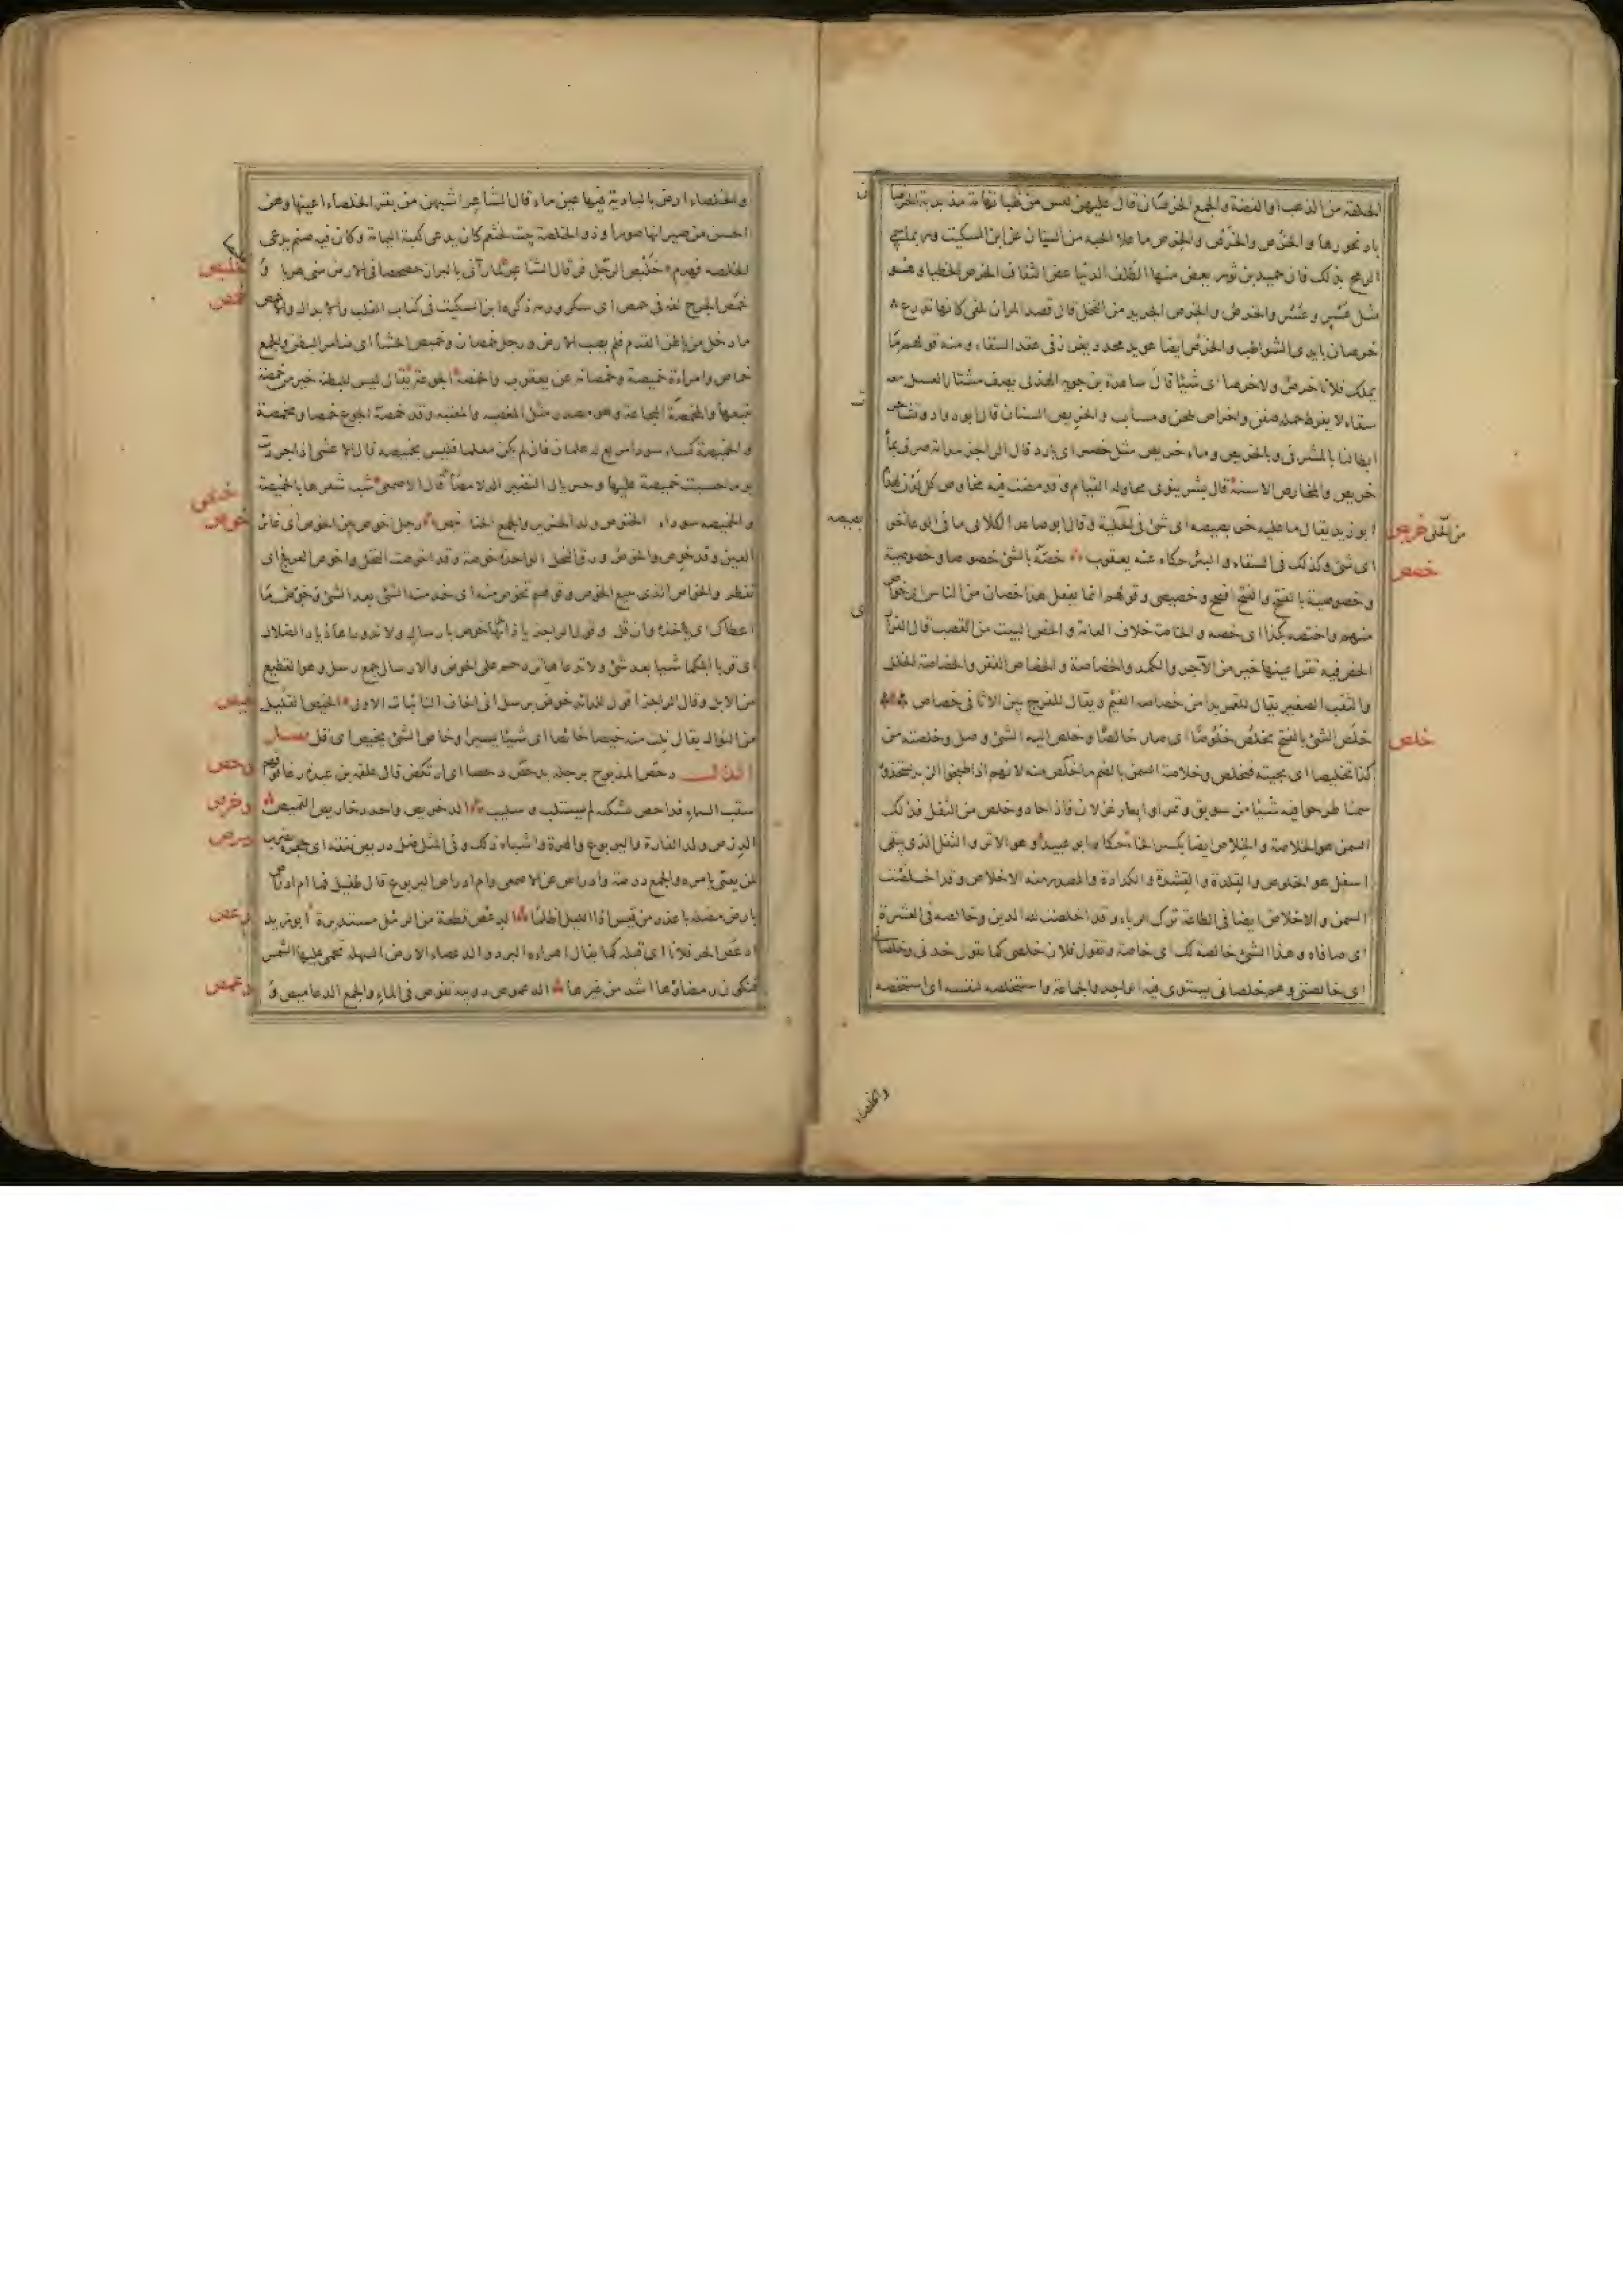 الحلقة من الذهب او الفضة والجمع الخرصان قال عليهن لعس من ظباء تهامة مذبذبة الخرصا
باد نحورها والخرص والخرص والخرص ما علا الجبة من السنان عن ابن السكيت وربما سمي
الرمح بذلك قال حميد بن ثور يعض منها الظلف الدئيا عض الثقاف الخرص الخطيا وهو
مثل عسر وعسر والخرص والخرص الجريد من النخل قال قصد المران تلقى كانها تذرع
خرصان بايدي الشواطب والخرص ايضا عويد محدد يغرز في عقد السقاء ومنه قولهم ما
يملك فلان خرصا ولا خرصا اي شيئا قال ساعدة بن جوية الهذلي يصف مشتار العسل معه
سقاء لا يفرط حمله صفن واخراص يلحن ومساب والخريص السنان قال ابو دواد وتشاجرت
ابطالنا بالمشرفي وبالخريص وماء خريص مثل خصر اي بارد قال الراجز مدامة صرف بماء
خريص والمخارص الاسنة قال بشر ينوي محاولة القيام وقد مضت فيه مخارص كل لدن لهذم
ابو زيد يقال ما عليه خربصيصة اي شئ من الحلي وقال ابو صاعد الكلابي ما في الوعاء خر
بصيصة
من الحلي خربص
اي شئ وكذلك في السقاء والبئر حكاه عنه يعقوب خصه بالشئ خصوصا وخصوصية
خصص
وخصوصية بالفتح والفتح افصح وخصيصي وقولهم انما يفعل هذا خصان من الناس اي خواص
منهم واختصه بكذا اي خصه والخاصة خلاف العامة والخص البيت من القصب قال الفزاري
الخص فيه تقر اعيننا خير من الآجر والكمد والخصاصة والخصاص الفقر والخصاصة الخلل
والثقب الصغير يقال للقمر بدا من خصاصة الغيم ويقال للفرج بين الاثافي خصاص
خلص الشئ بالفتح يخلص خلوصا اي صار خالصا وخلص اليه الشئ وصل وخلصته من
خلص
كذا تخليصا اي نجيته فتخلص وخلاصة السمن بالضم ما خلص منه لانهم اذا طبخوا الزبد ليتخذوه
سمنا طرحوا فيه شيئا من سويق وتمر او ابعار غزلان فاذا جاد وخلص من الثفل فذلك
السمن هو الخلاصة والخلاص ايضا بكسر الخاء حكاه ابو عبيد وهو الاثر والثفل الذي يبقى
اسفل هو الخلوص والقلدة والقشدة والكدادة والمصدر منه الاخلاص وقد اخلصت
السمن والاخلاص ايضا في الطاعة ترك الرياء وقد اخلصت لله الدين وخالصه في العشرة
اي صافاه وهذا الشئ خالصة لك اي خاصة وتقول فلان خلصي كما تقول خدني وخلصاني
اي خالصتي وهم خلصاني يستوي فيه الواحد والجماعة واستخلصه لنفسه اي استخصه
والخلصاء
والخلصاء ارض بالبادية فيها عين ماء قال الشاعر اشبهن من بقر الخلصاء اعينها وهن
احسن من صيرانها صورا وذو الخلصة بيت لخثعم كان يدعى كعبة اليمامة وكان فيه صنم يدعى
الخلصة فهدم خلبص الرجل فر قال الشاعر لما رآني بالبراز حصحصا في الارض مني هربا
خلبص
خمص الجرح لغة في حمص اي سكن ورمه ذكره ابن السكيت في كتاب القلب والابدال والاخمص
خمص
ما دخل من باطن القدم فلم يصب الارض ورجل خمصان وخميص الحشا اي ضامر البطن والجمع
خماص وامراة خميصة وخمصانة عن يعقوب والخمصة الجوعة يقال ليس للبطنة خير من خمصة
تتبعها والمخمصة المجاعة وهو مصدر مثل المغضبة والمعتبة وقد خمصه الجوع خمصا ومخمصة
والخميصة كساء اسود مربع له علمان فان لم يكن معلما فليس بخميصة قال الاعشى اذا جردت
يوما حسبت خميصة عليها وجريال النضير الدلامصا قال الاصمعي شبه شعرها بالخميصة
والخميصة سوداء الخنوص ولد الخنزير والجمع الخنانيص رجل اخوص بين الخوص اي غائر
خنص
خوص
العين وقد خوص والخوص ورق النخل الواحدة خوصة وقد اخوصت النخل واخوص العرفج اي
تفطر والخواص الذي يبيع الخوص وقولهم تخوص منه اي خذ منه الشئ بعد الشئ وخوص ما
اعطاك اي خذه وان قل وقول الراجز يا ذائديها خوصا بارسال ولا تذوداها ذياد الضلال
اي قربا ابلكما شيئا بعد شئ ولا تدعاها تزدحم على الحوض والارسال جمع رسل وهو القطيع
من الابل وقال الراجز اقول للذائد خوص برسل اني اخاف النائبات بالاول الخيص القليل
خيص
من النوال يقال نلت منه خيصا خائصا اي شيئا يسيرا وخاص الشئ يخيص اي قل فصل
الدال دحص المذبوح برجله يدحص دحصا اي ارتكض قال علقة بن عبدة رغا فوقهم
دحص
سقب السماء فداحص بشكته لم يستلب وسليب الدخريص واحد دخاريص القميص
دخرص
الدرص ولد الفارة واليربوع والهرة واشباه ذلك وفي المثل ضل دريص نفقه اي جحره يضرب
درص
لمن يعنى بامره والجمع درصة وادراص عن الاصمعي وام ادراص اليربوع قال طفيل فما ام ادراص
بارض مضلة باغدر من قيس اذا الليل اظلما الدعص قطعة من الرمل مستديرة ابو زيد
دعص
ادعص الحر فلانا اي قتله كما يقال اهراه البرد والدعصاء الارض السهلة تحمى عليها الشمس
فتكون رمضاؤها اشد من غيرها الدعموص دويبة تغوص في الماء والجمع الدعاميص و
دعمص